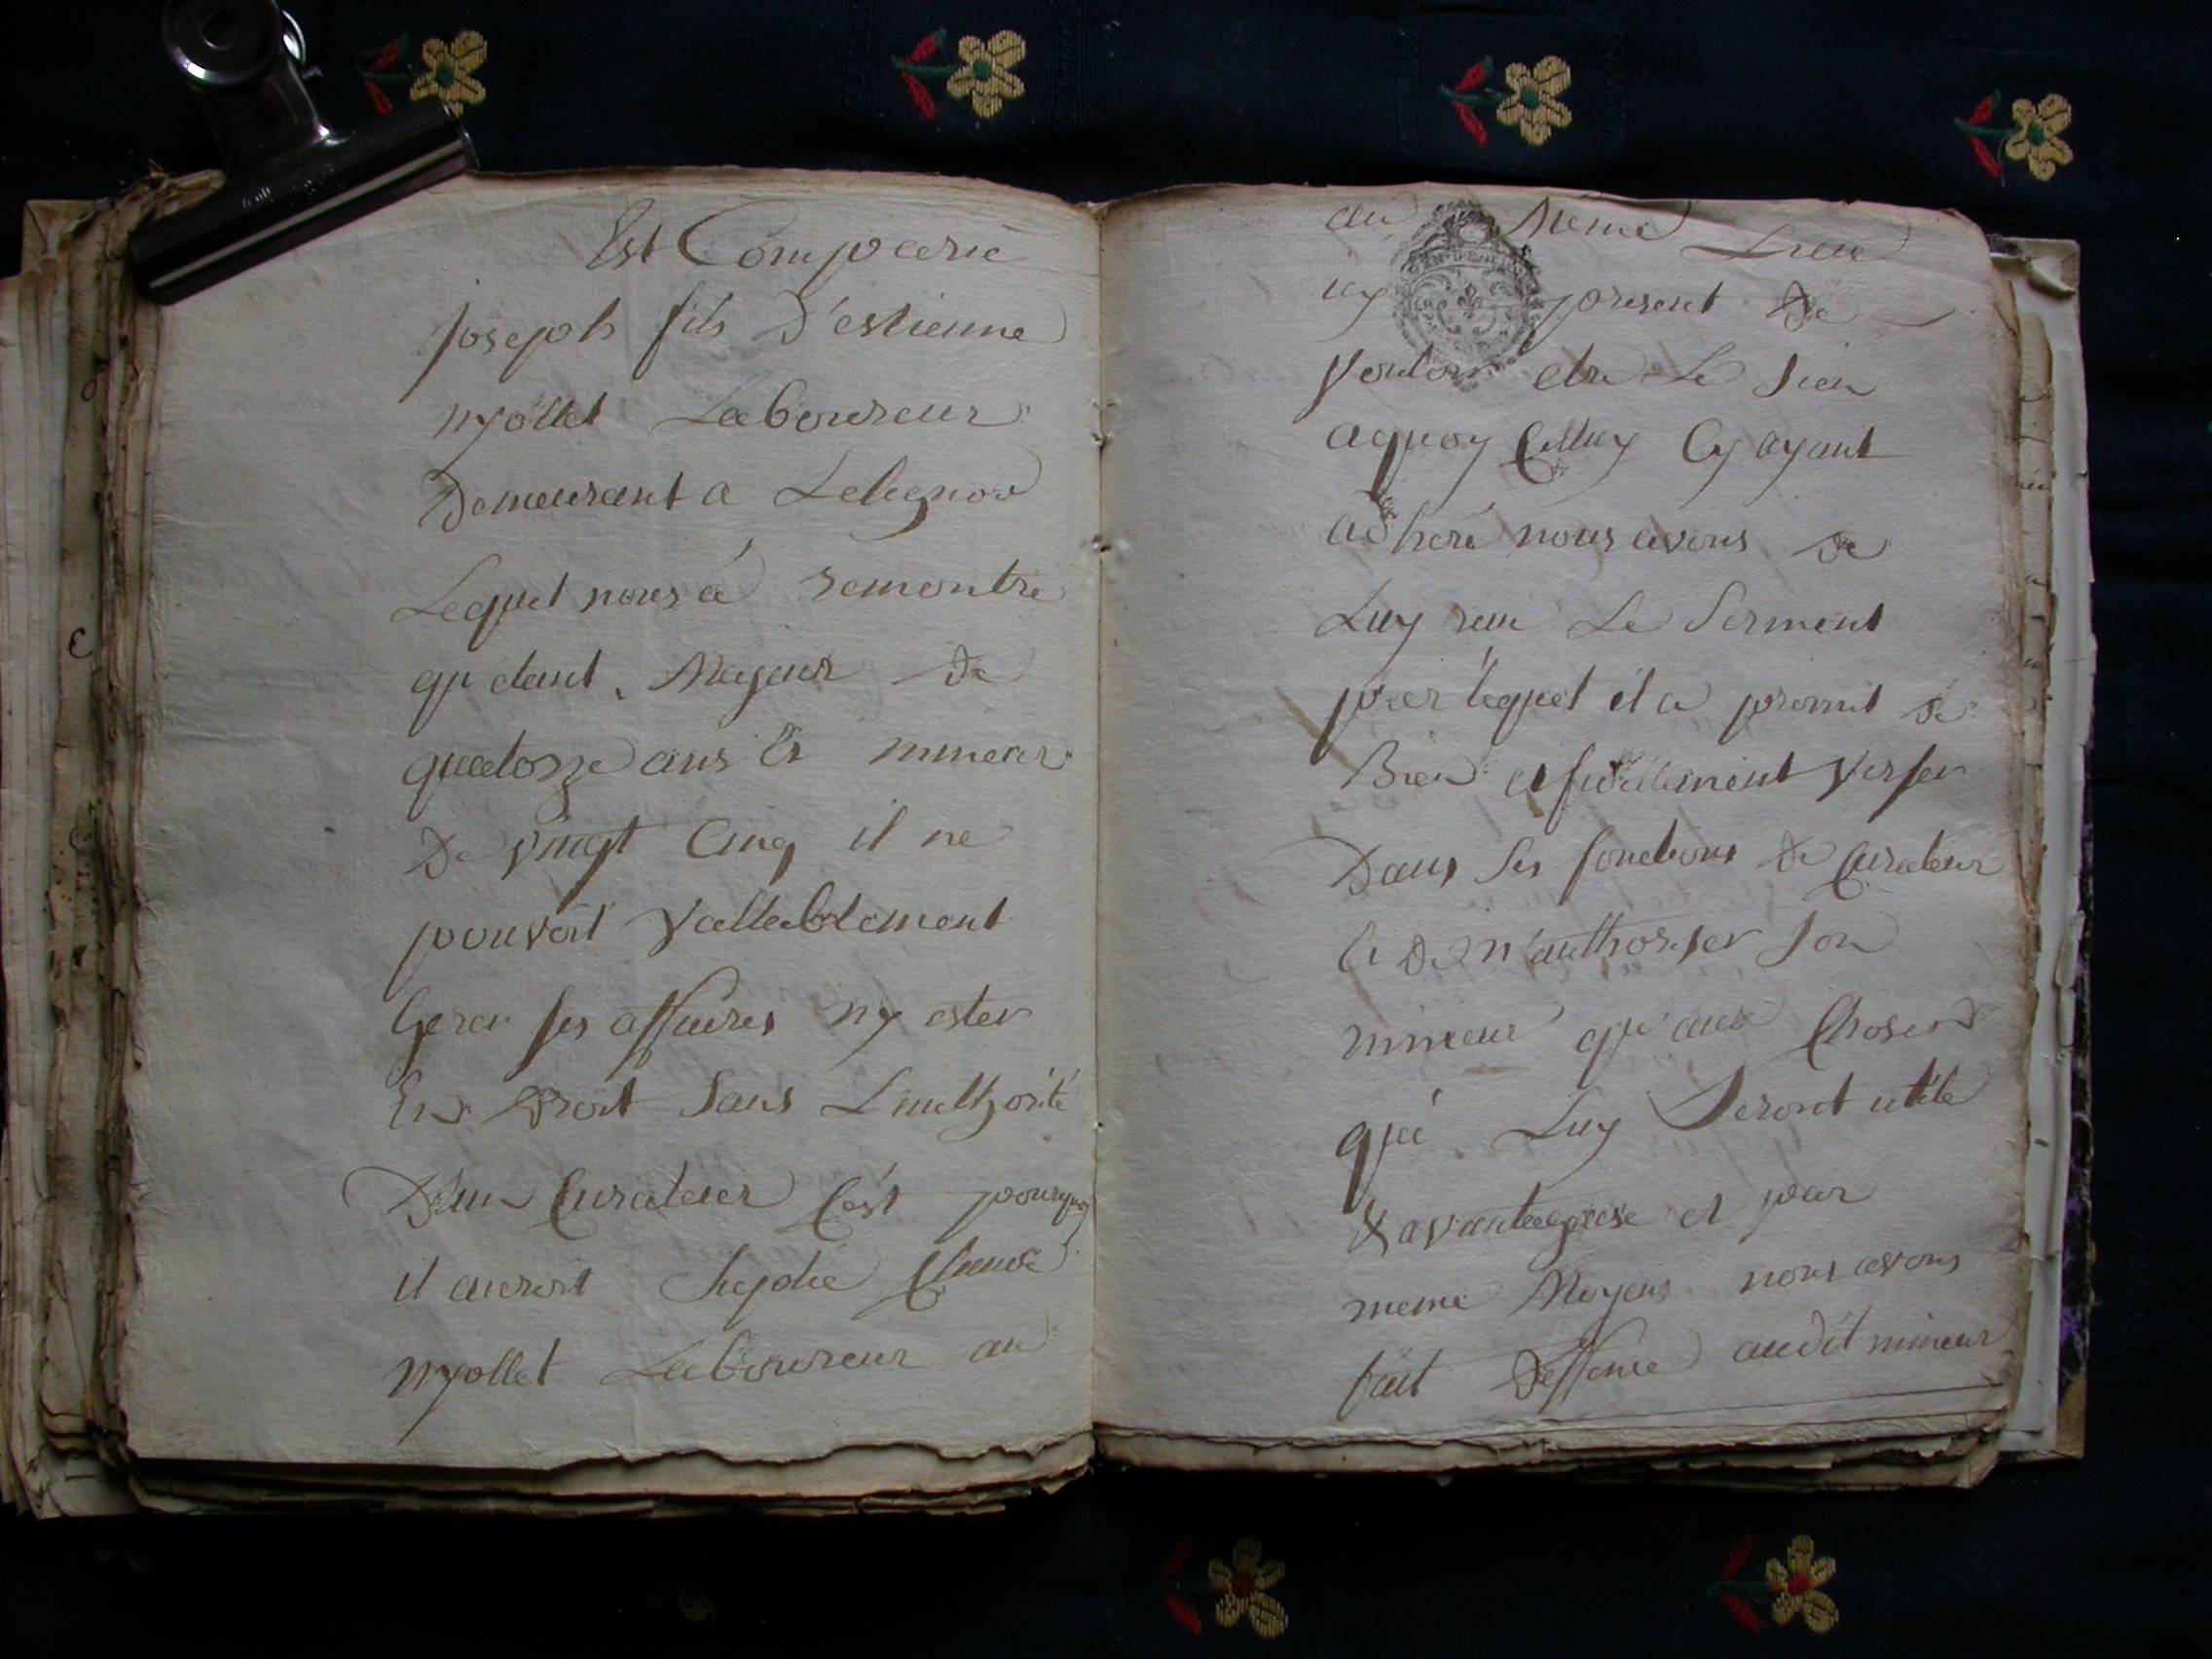 Est Comparü
joseph fils D'estienne
nyollet Laboureur
Demeurant a
Lequel nous a remontré
qu'etant Majeur De
quatorze ans Et mineur
De vingt Cinq il ne
pouvoit vallablement
Gerer ses affaires ny ester
En Droit Sans L'authorité
D'un Curateur C'est pourquoy
il auroit Suplié Claude
nyollet Laboureur au
au Meme Lieu
icy present De
vouloir etre Le Sien
aquoy Celluy Cy ayant
adheré nous avons De
Luy reçu Le Serment
par lequel il a promit De
Bien et fidellement verser
Dans Ses fonctions De Curateur
Et De n'authoriser Son
mineur qu'aux Choses
qui Luy Seront utile
& avantageuse et par
meme Moyens nous avons
fait Deffence audit mineur